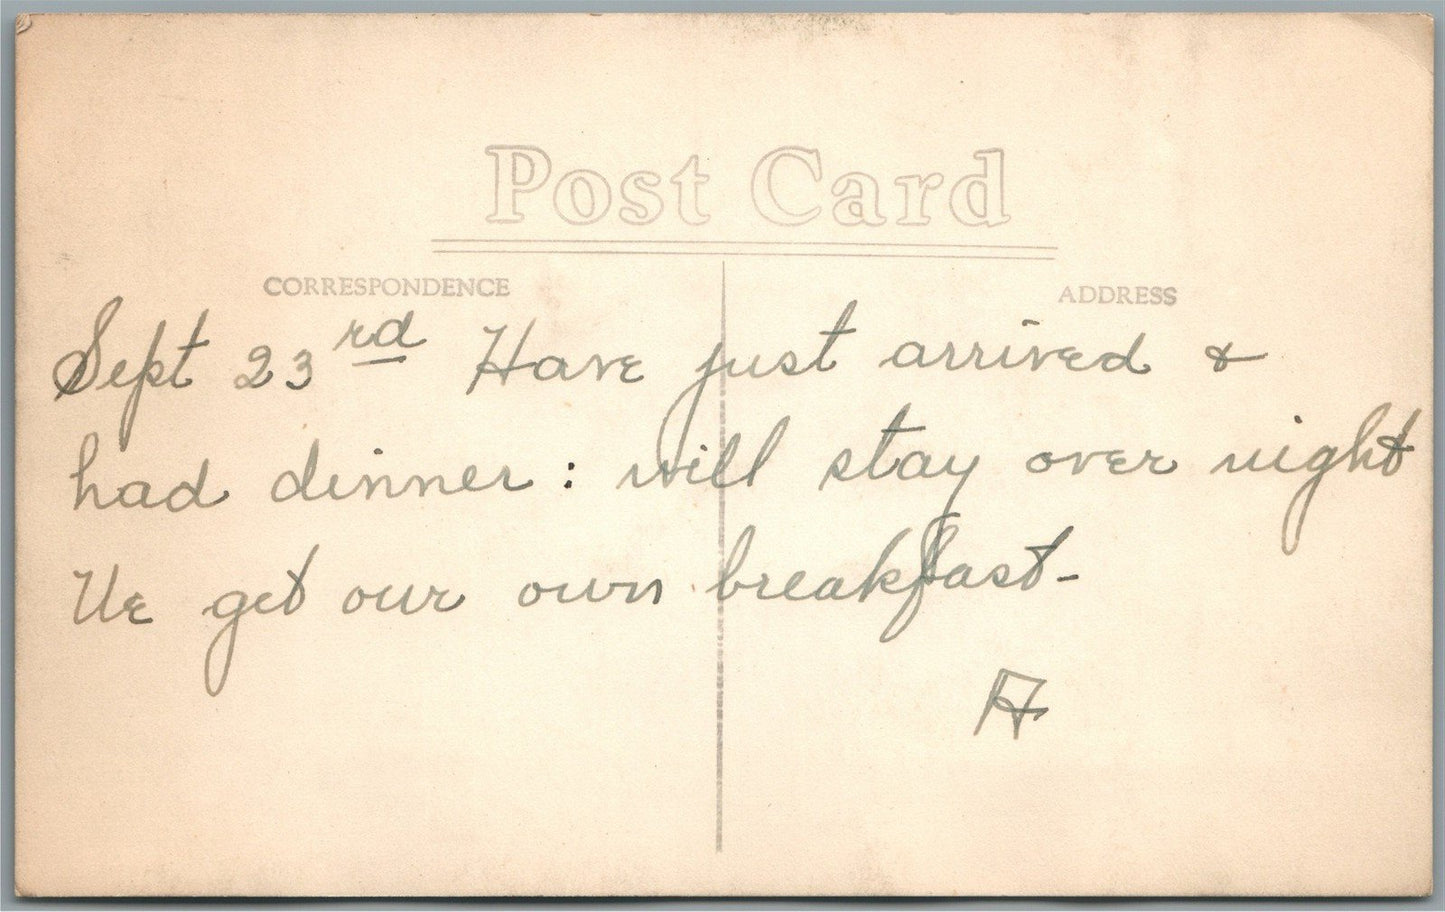 Post Card
CORRESPONDENCE ADDRESS
Sept 23rd Have just arrived &
had dinner: will stay over night
We get our own breakfast-
A